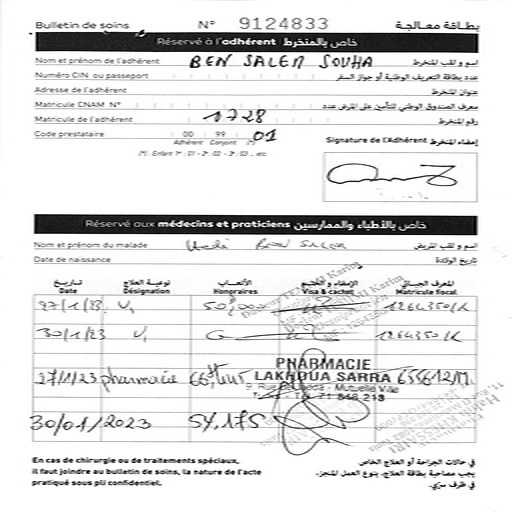 Bulletin de soins N° 9124833 بطاقة معالجة
Réservé à l'adhérent خاص بالمنخرط
Nom et prénom de l'adhérent BEN SALEM SOUHA اسم و لقب المنخرط
Numéro CIN ou passeport عدد بطاقة التعريف الوطنية أو جواز السفر
Adresse de l'adhérent عنوان المنخرط
Matricule CNAM N° معرف الصندوق الوطني للتأمين على المرض عدد
Matricule de l'adhérent 1728 رقم المنخرط
Code prestataire 00 99 01
Adhérent Conjoint (*)
(*) Enfant 1er : 01 - 2e : 02 - 3e : 03 .. etc
Signature de l'Adhérent إمضاء المنخرط
Réservé aux médecins et praticiens خاص بالأطباء والممارسين
Nom et prénom du malade BEN SALEM اسم و لقب المريض
Date de naissance تاريخ الولادة
تاريخ نوعية العلاج الأتعاب الإمضاء و الختم المعرف الجبائي
Date Désignation Honoraires Visa & cachet Matricule fiscal
27/1/23 V1 50,000 1264350/K
30/1/23 V1 1264350/K
27/1/23 pharmacie PHARMACIE
LAKHOUA SARRA
Mutuelle Ville
Tél 71 848 213
30/01/2023 54,175
En cas de chirurgie ou de traitements spéciaux,
il faut joindre au bulletin de soins, la nature de l'acte
pratiqué sous pli confidentiel.
في حالات الجراحة أو العلاج الخاص
يجب مصاحبة بطاقة العلاج، بنوع العمل المنجز،
في ظرف سري.